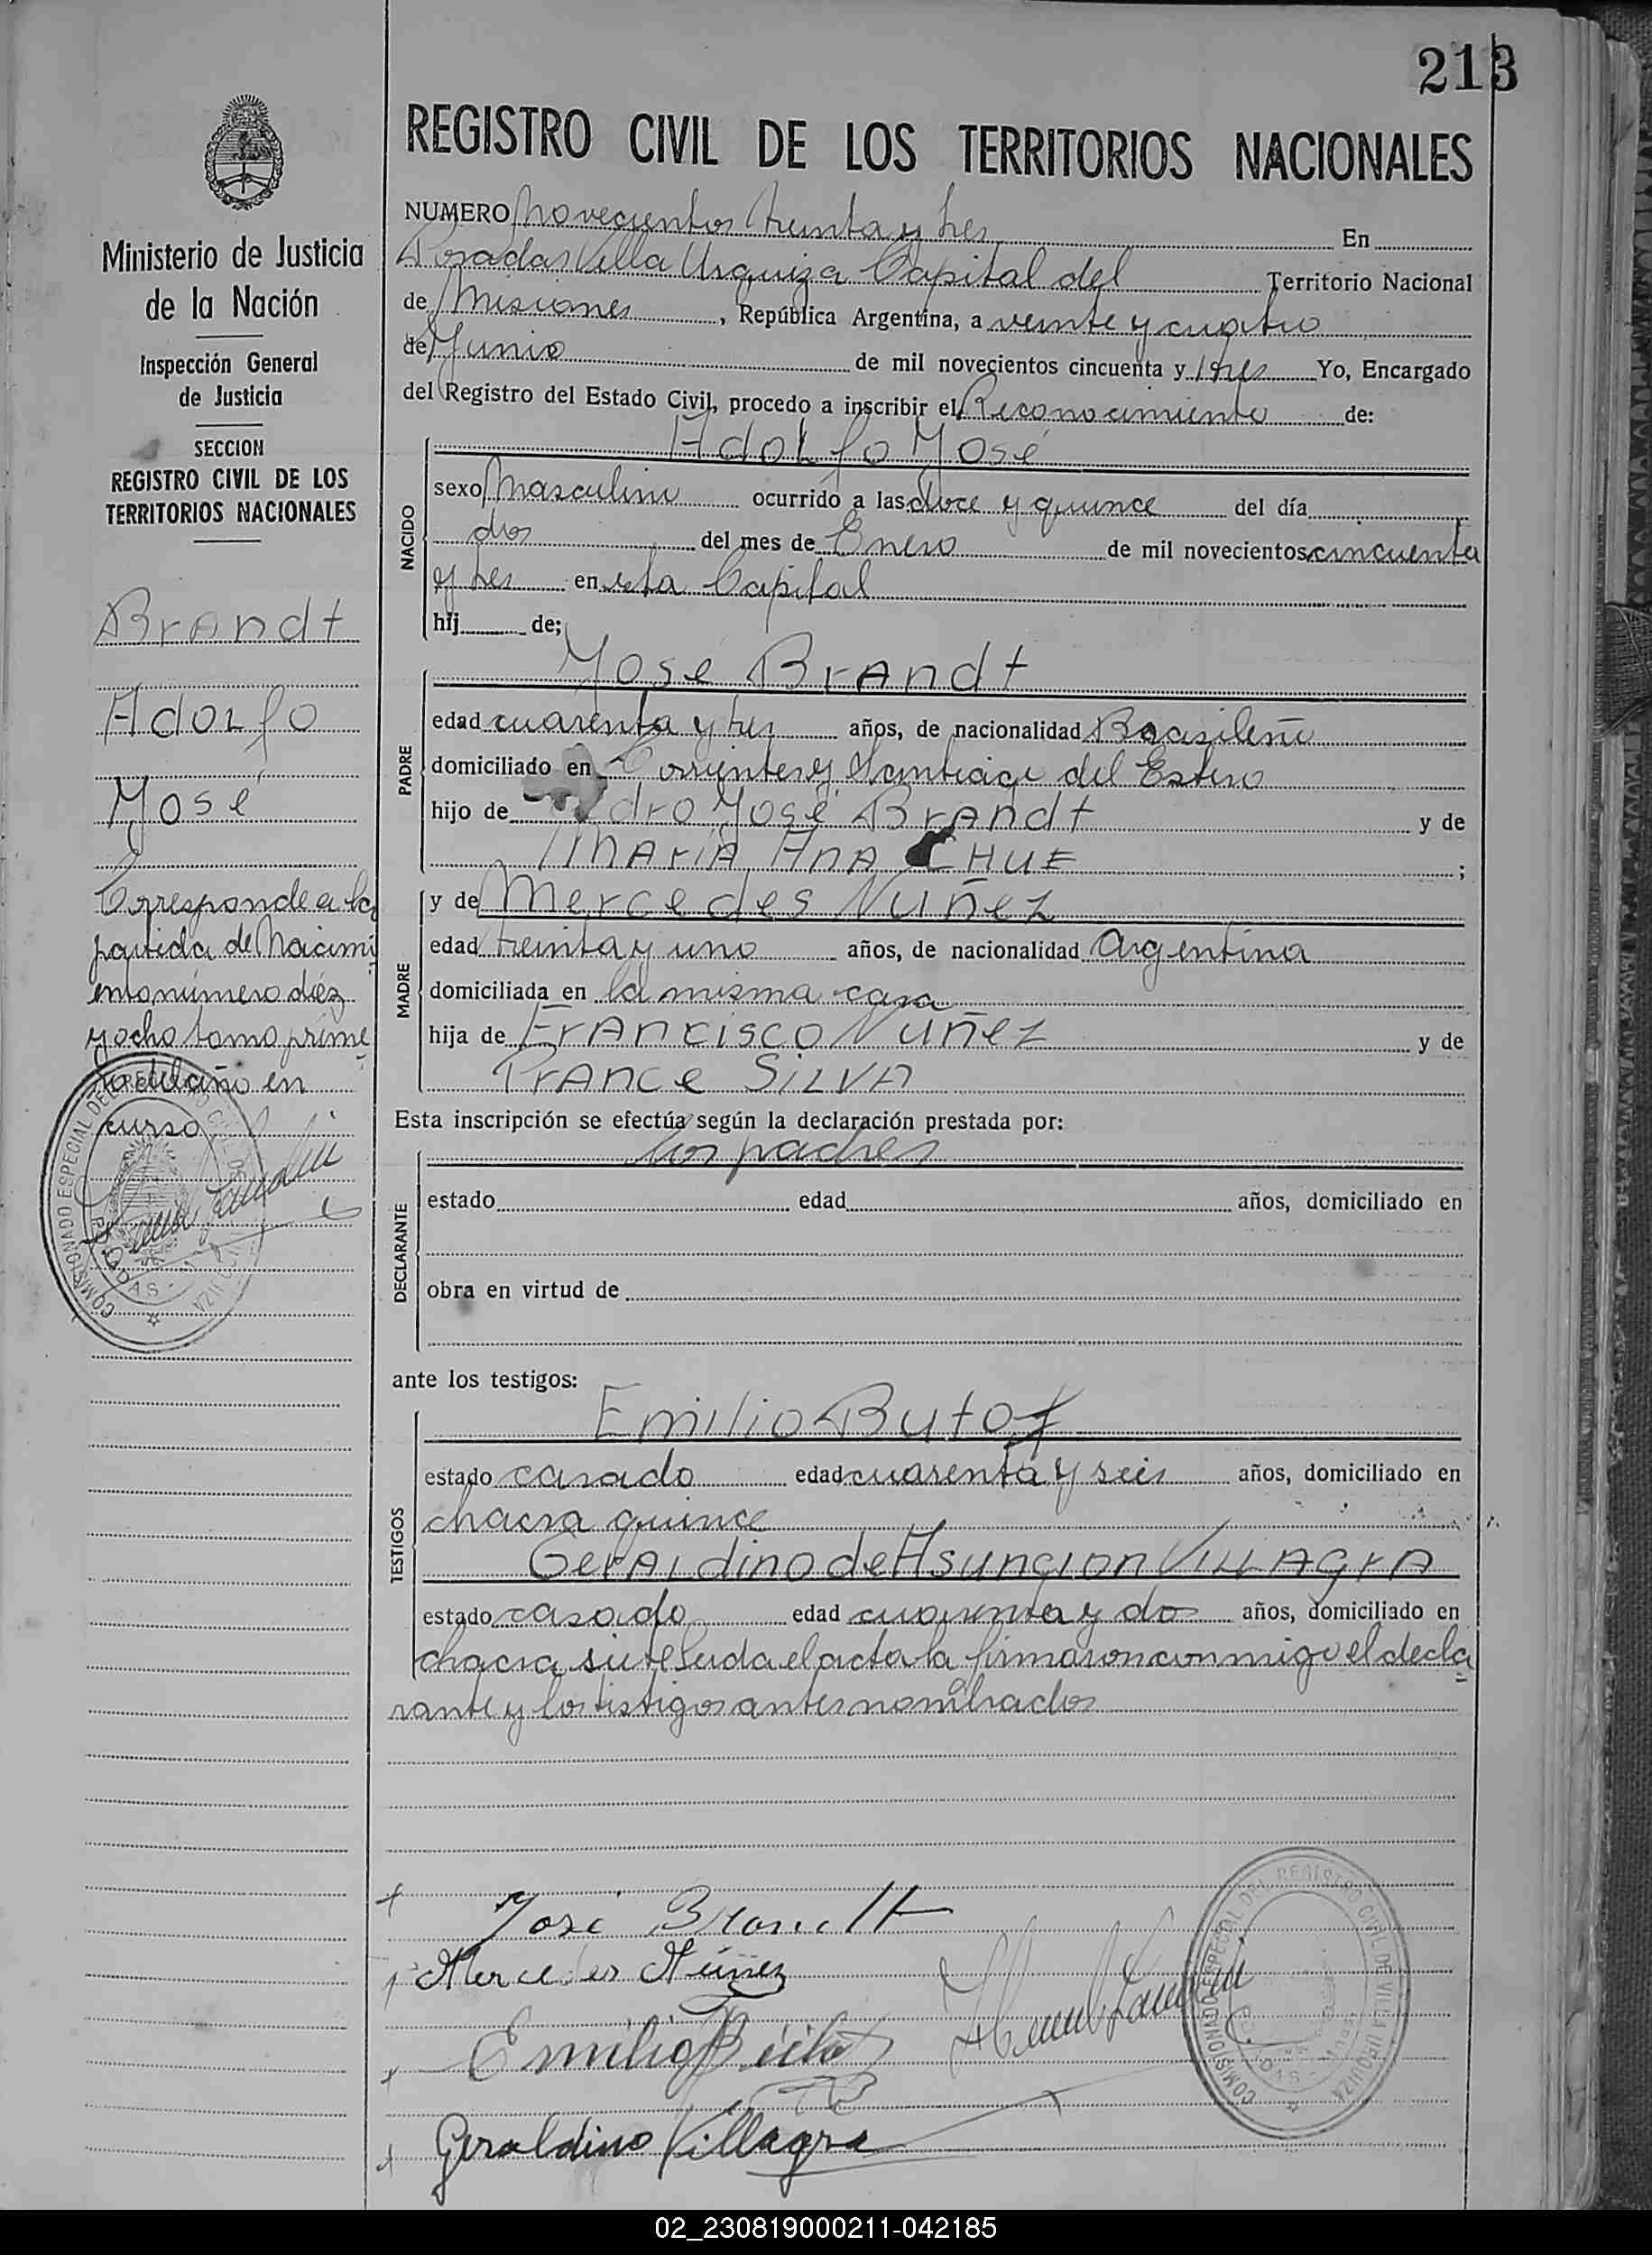 213
REGISTRO CIVIL DE LOS TERRITORIOS NACIONALES
Ministerio de Justicia
de la Nación
Inspección General
de Justicia
SECCION
REGISTRO CIVIL DE LOS
TERRITORIOS NACIONALES
Brandt
Adolfo
José
Corresponde a la
partida de Nacimi
ento número diéz
y ocho tomo prime
ro del año en
curso
NUMERO Novecientos treinta y tres En
Posadas Villa Urquiza Capital del Territorio Nacional
de Misiones, República Argentina, a veinte y cuatro
de Junio de mil novecientos cincuenta y tres Yo, Encargado
del Registro del Estado Civil, procedo a inscribir el Reconocimiento de:
Adolfo José
NACIDO
sexo Masculino ocurrido a las doce y quince del día
dos del mes de Enero de mil novecientos cincuenta
y tres en esta Capital
hij de;
José Brandt
PADRE
edad cuarenta y tres años, de nacionalidad Brasileño
domiciliado en Corrientes y Santiago del Estero
hijo de José Brandt y de
María Ana CHUE ;
y de Mercedes Nuñez
MADRE
edad treinta y uno años, de nacionalidad Argentina
domiciliada en la misma casa
hija de Francisco Nuñez y de
France Silva
Esta inscripción se efectúa según la declaración prestada por:
los padres
DECLARANTE
estado edad años, domiciliado en
obra en virtud de
ante los testigos:
Emilio
TESTIGOS
estado casado edad cuarenta y seis años, domiciliado en
chacra quince
Geraldino de Asuncion Villagra
estado casado edad cuarenta y dos años, domiciliado en
chacra siete Leida el acta la firmaron conmigo el decla
rante y los testigos antes nombrados
José Brandt
Mercedes Núñez
Emilio
Geraldino Villagra
COMISIONADO ESPECIAL DEL REGISTRO CIVIL DE VILLA URQUIZA
02_230819000211-042185